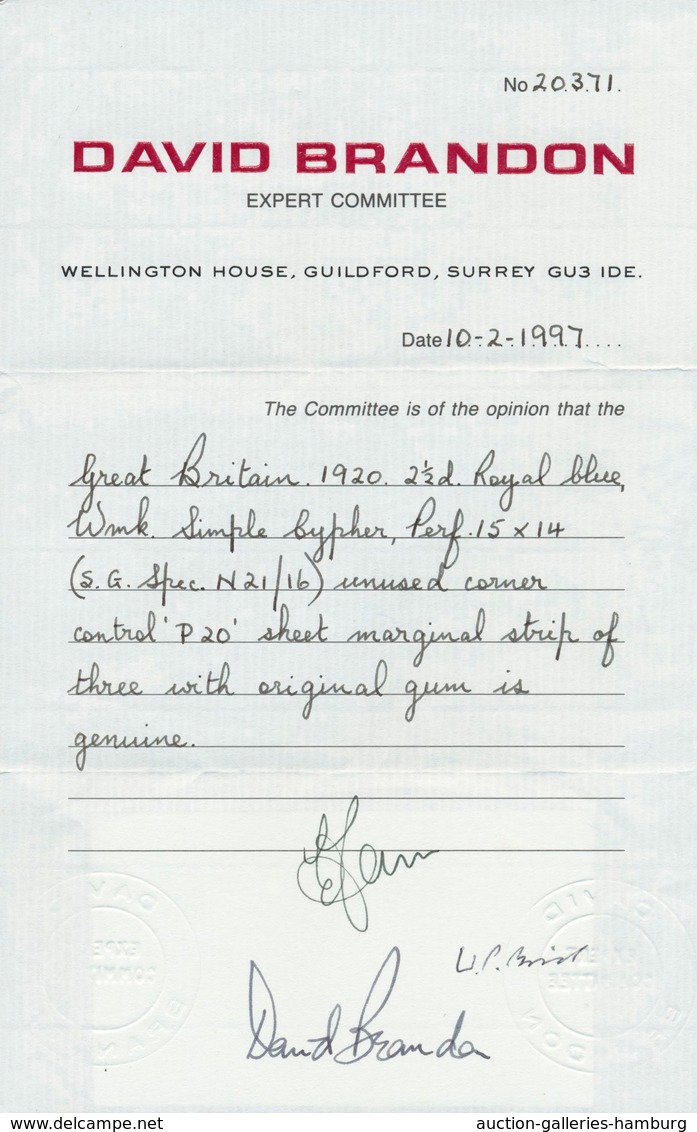 No 20.371.
DAVID BRANDON
EXPERT COMMITTEE
WELLINGTON HOUSE, GUILDFORD, SURREY GU3 1DE.
Date 10-2-1997....
The Committee is of the opinion that the
Great Britain. 1920. 2½d. Royal blue,
Wmk. Simple Cypher, Perf. 15 x 14
(S.G. Spec. N21/16) unused corner
control 'P20' sheet marginal strip of
three with original gum is
genuine.
David Brandon
www.delcampe.net
auction-galleries-hamburg